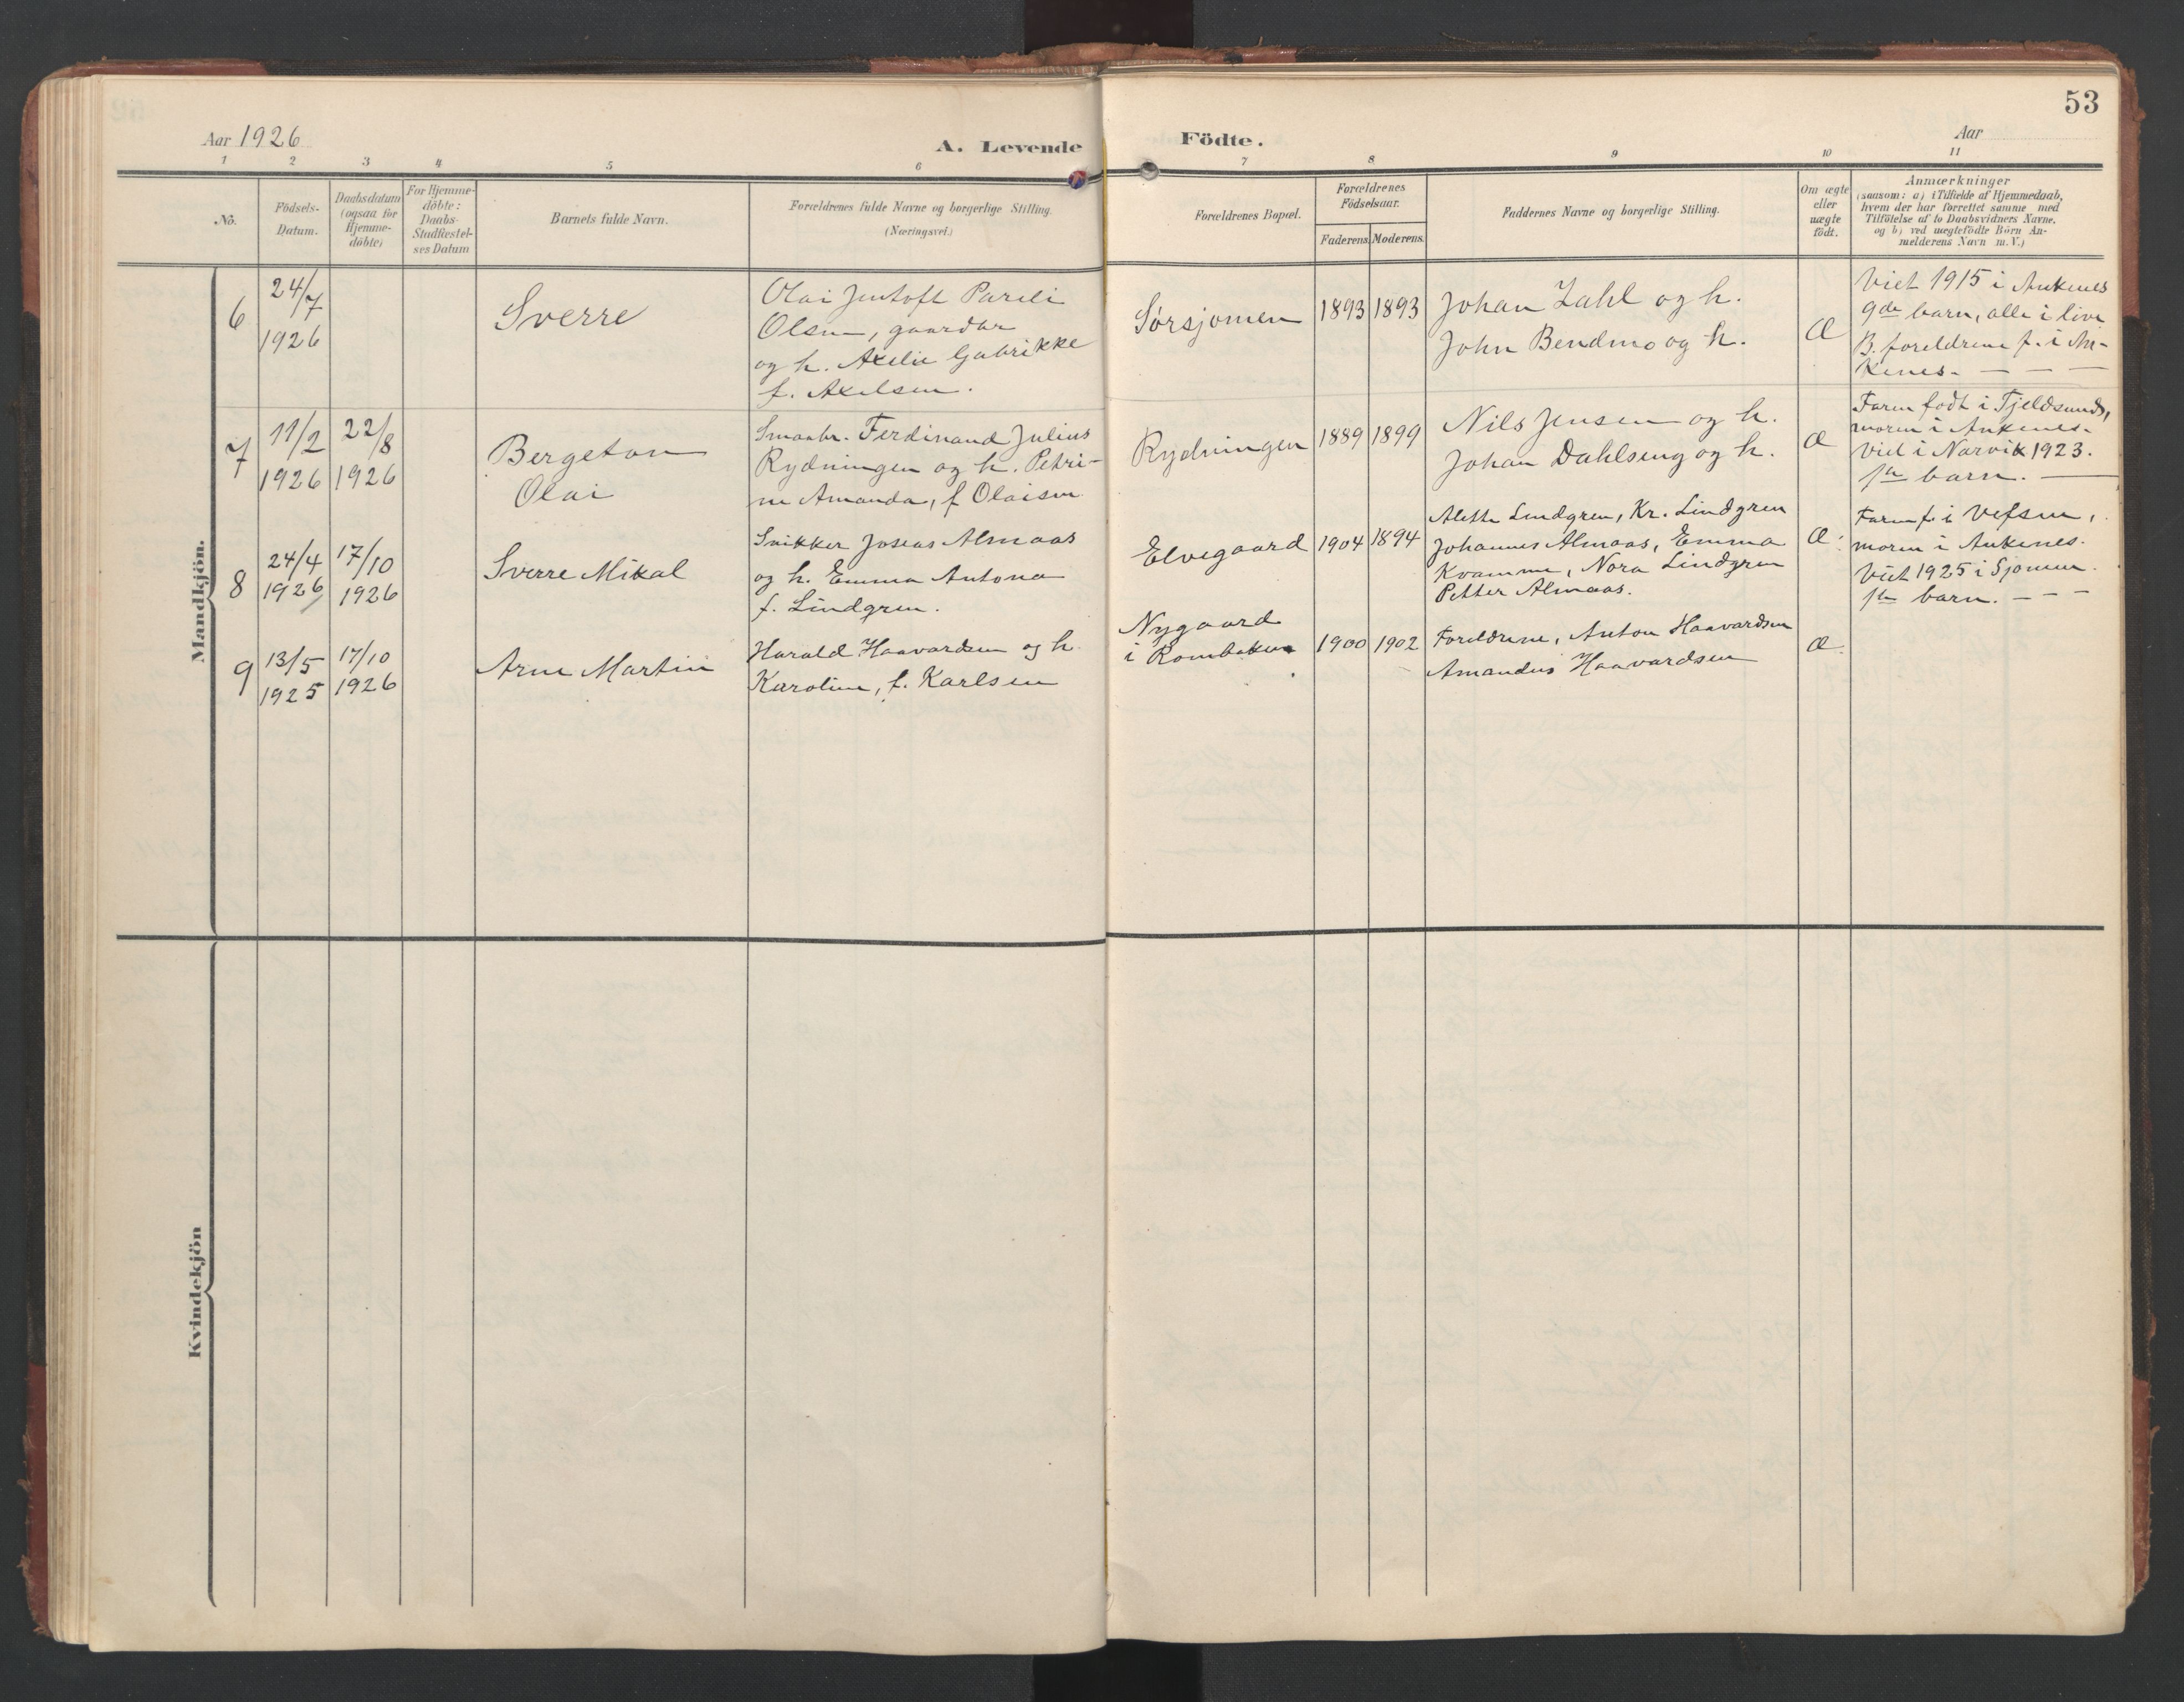 53
Aar 1926
A. Levende Födte.
Aar
1 2 3 4 5 6 7 8 9 10 11
No.
Födsels-
Datum.
Daabsdatum
(ogsaa for
Hjemme-
döbte)
For Hjemme-
döbte:
Daabs-
Stadfæstel-
ses Datum
Barnets fulde Navn.
Forældrenes fulde Navne og borgerlige Stilling.
(Næringsvei.)
Forældrenes Bopæl.
Forældrenes
Födselsaar.
Faderens. Moderens.
Faddernes Navne og borgerlige Stilling.
Om ægte
eller
uægte
födt.
Anmærkninger
(saasom: a) i Tilfælde af Hjemmedaab,
hvem der har forrettet samme med
Tilföielse af to Daabsvidners Navne,
og b) ved uægtefödte Börn An-
melderens Navn m. V.)
Mandkjön.
6
24/7
1926
Sverre
Olai Jentoft Pareli
Olsen, gaardbr
og h. Axelie Gabrikke
f. Axelsen.
Sørsjomen
1893 1893
Johan Zahl og h.
John Bendmo og h.
Æ
Viet 1915 i Ankenes
9de barn, alle i live
B. foreldrene f. i An-
kenes. — — —
7
11/2
1926
22/8
1926
Bergeton
Olai
Smaabr. Ferdinand Julius
Rydningen og h. Petri-
ne Amanda, f Olaisen
Rydningen
1889 1899
Nils Jensen og h.
Johan Dahlseng og h.
Æ
Faren født i Tjeldsund,
moren i Ankenes.
Viet i Narvik 1923.
1ste barn. —
8
24/4
1926
17/10
1926
Sverre Mikal
Snikker Joseas Almaas
og h. Emma Antona
f. Lindgren.
Elvegaard
1904 1894
Alette Lindgren, Kr. Lindgren
Johannes Almaas, Emma
Kvamme, Nora Lindgren
Petter Almaas.
Æ.
Faren f. i Vefsen,
moren i Ankenes.
Viet 1925 i Sjomen.
1ste barn. — — —
9
13/5
1925
17/10
1926
Arne Martin
Harald Haavardsen og h.
Karoline, f. Karlsen
Nygaard
i Rombaken
1900 1902
Foreldrene, Anton Haavardsen
Amandus Haavardsen
Æ.
Kvindekjön